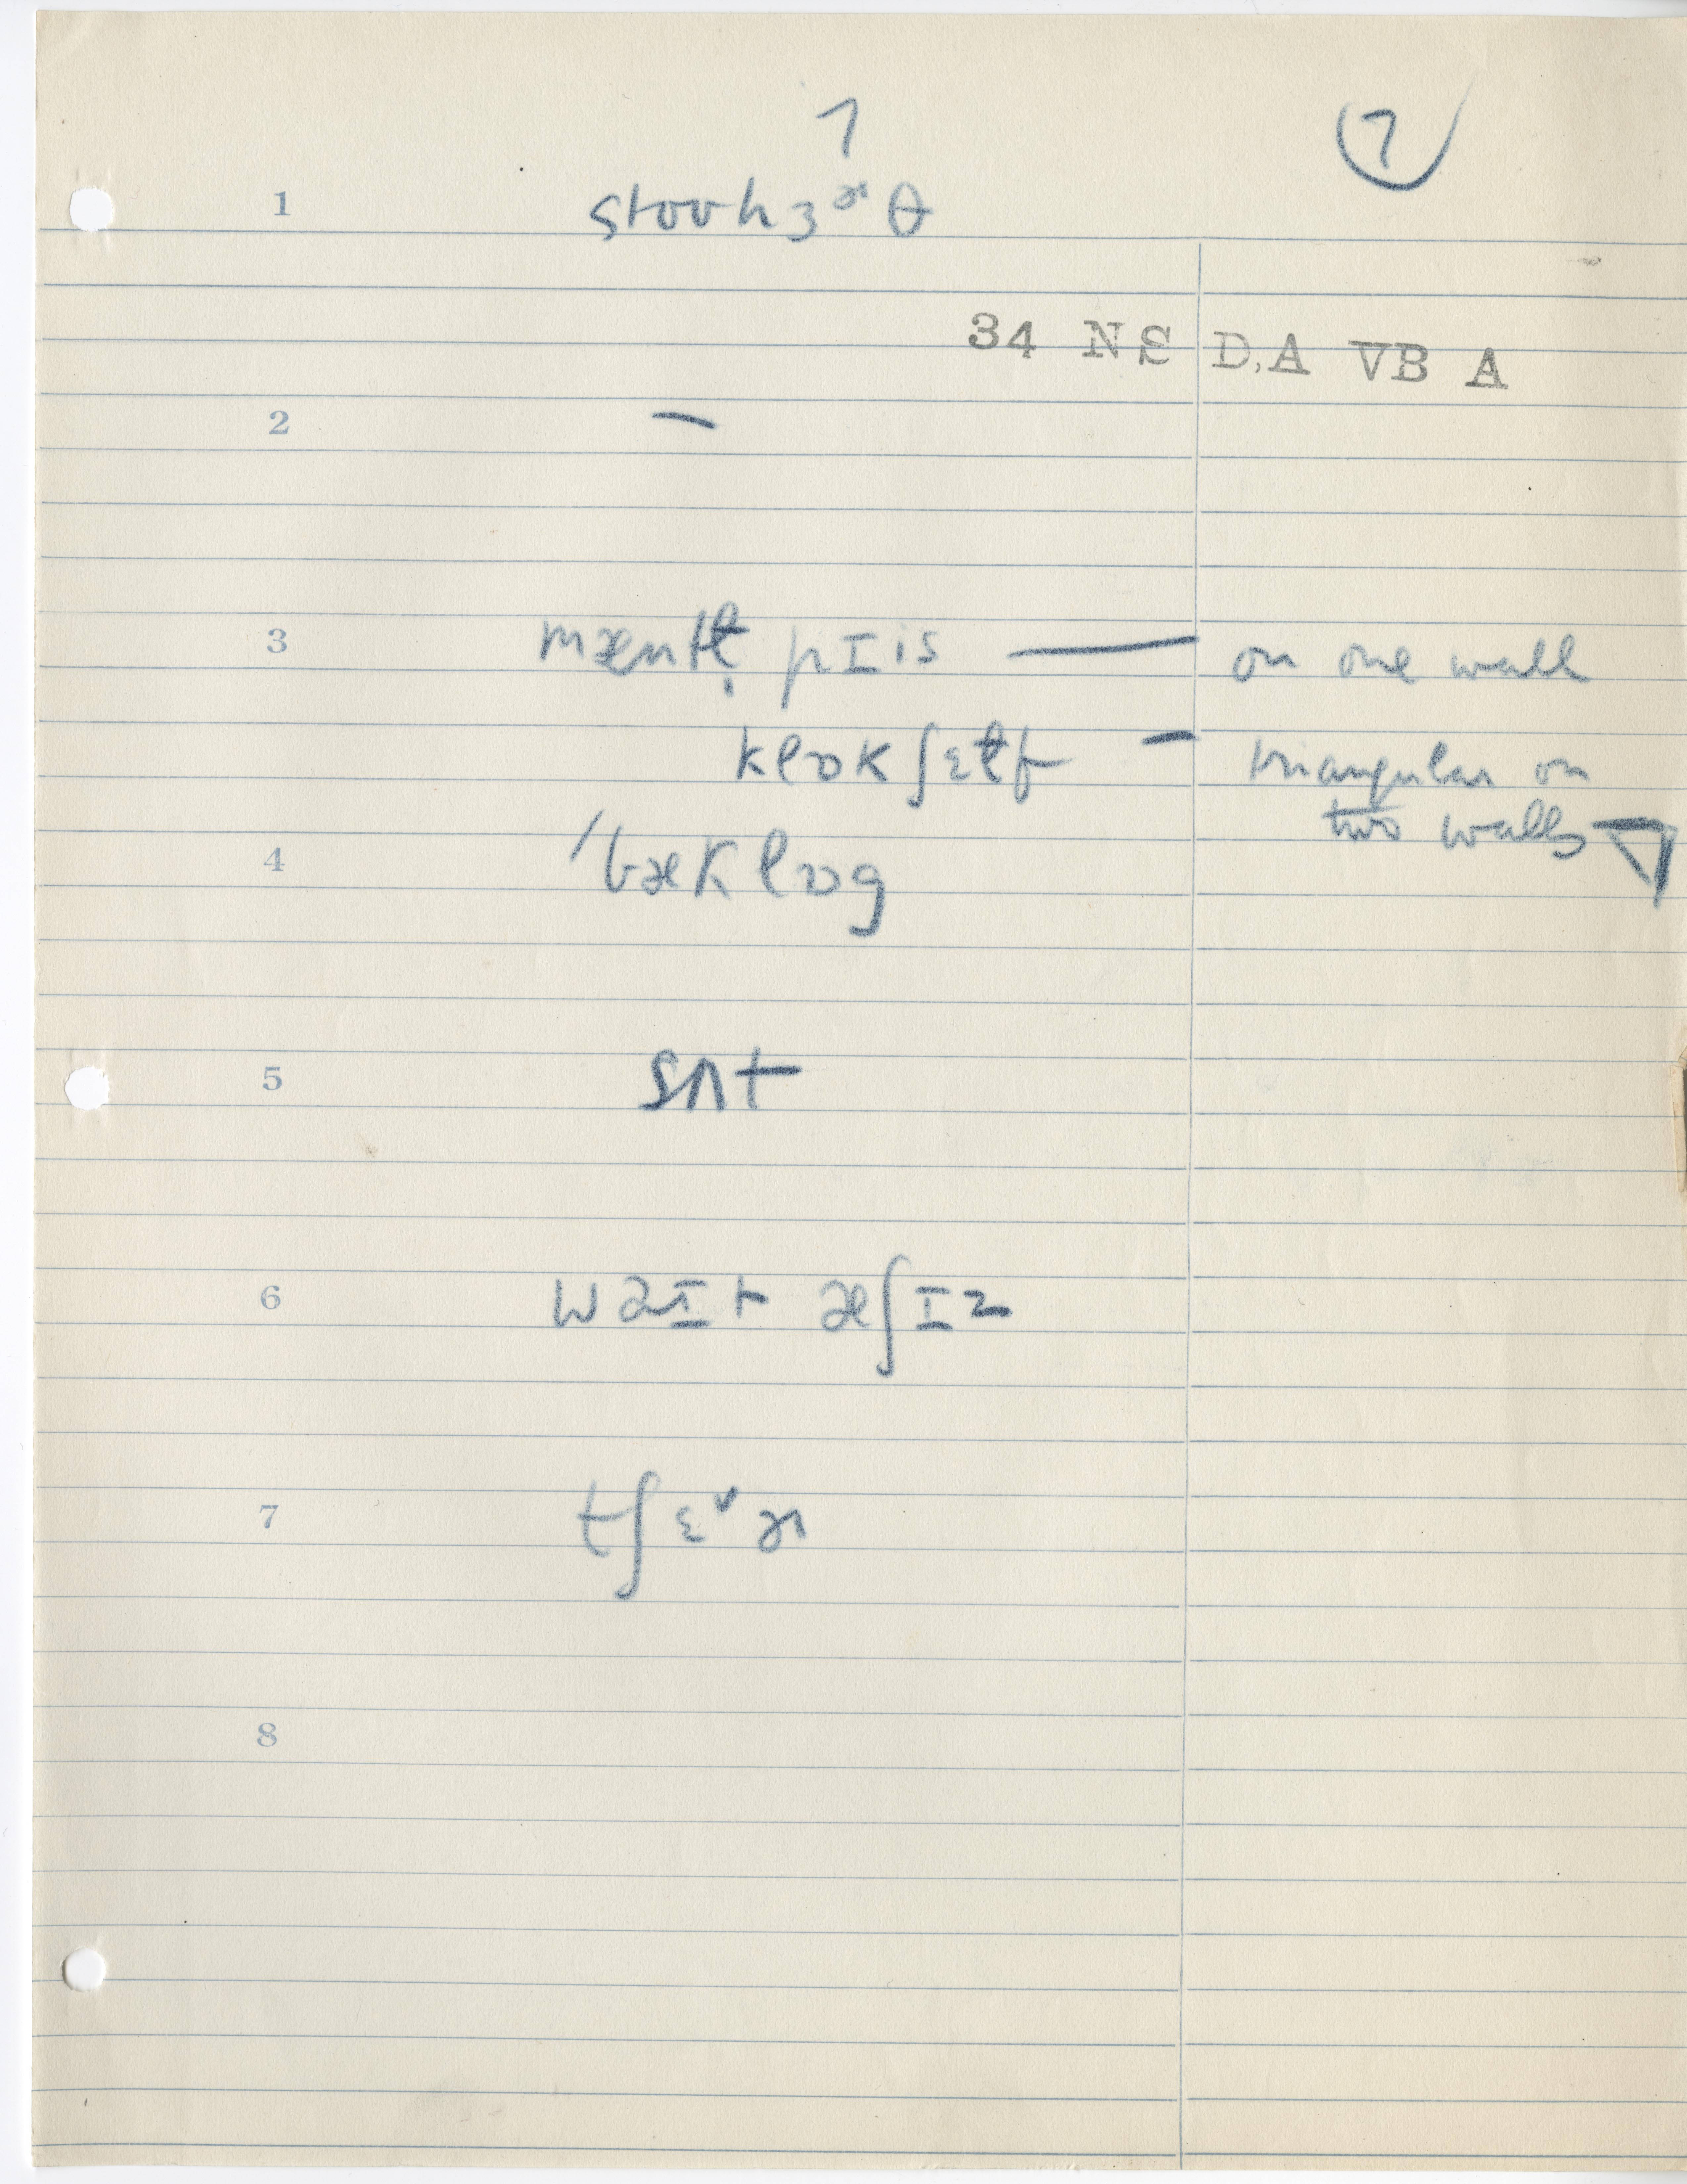 7 7
1 stoʊn hɜɚθ
34 NS D,A VB A
2 –
3 mæntl̩ pɪis — on one wall
klɒk ʃɛlf – triangular on
two walls
4 'bæk lɒg
5 sʌt
6 wəɪt æʃɪz
7 tʃɛˇɚ
8